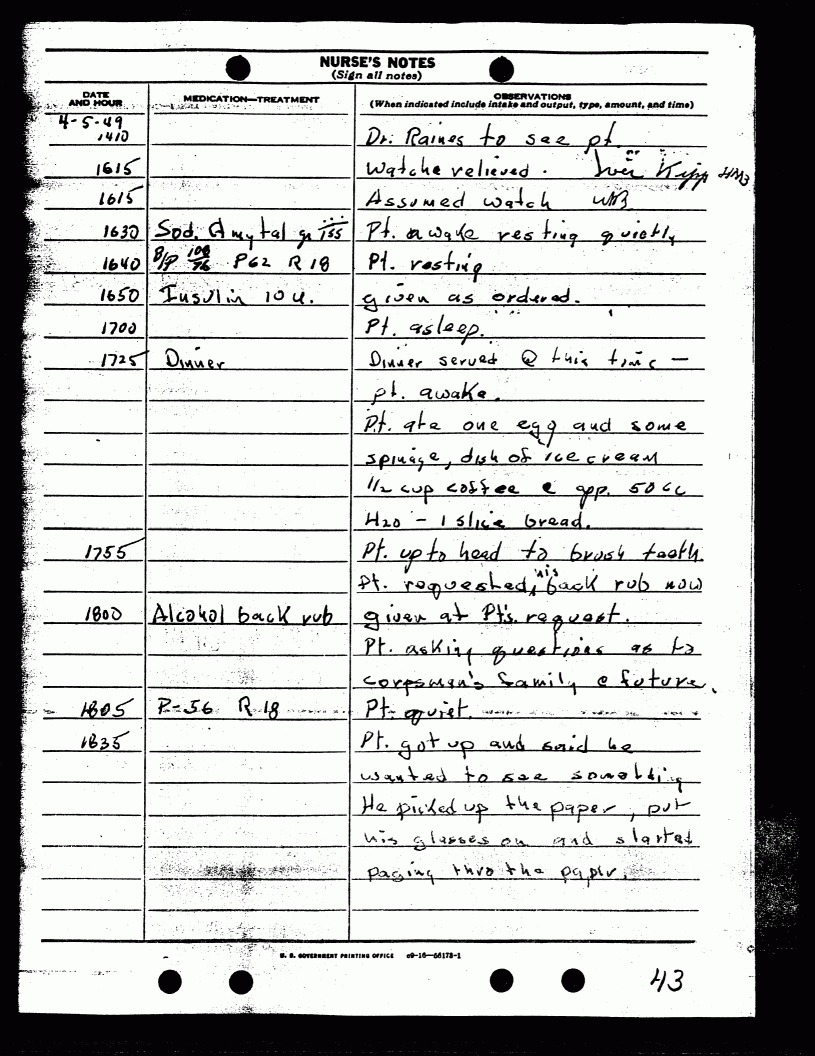 NURSE'S NOTES
(Sign all notes)
DATE AND HOUR
MEDICATION—TREATMENT
OBSERVATIONS
(When indicated include intake and output, type, amount, and time)
4-5-49
1410 Dr. Raines to see pt.
1615 Watche relieved. Kipp HM3
1615 Assumed watch WB
1630 Sod. Amytal gr iiiss Pt. awake resting quietly
1640 B/P 108/76 P62 R 18 Pt. resting
1650 Insulin 10 u. given as ordered.
1700 Pt. asleep.
1725 Dinner Dinner served @ this time —
pt. awake.
Pt. ate one egg and some
spinage, dish of ice cream
1/2 cup coffee @ app. 50 cc
H2O - 1 slice bread.
1755 Pt. up to head to brush teeth.
Pt. requested his back rub now
1800 Alcohol back rub given at Pt's. request.
Pt. asking questions as to
corpsmen's family @ future.
1805 P-56 R 18 Pt. quiet.
1835 Pt. got up and said he
wanted to see something
He picked up the paper, put
his glasses on and started
paging thro the paper.
U. S. GOVERNMENT PRINTING OFFICE o9-16—55173-1
43